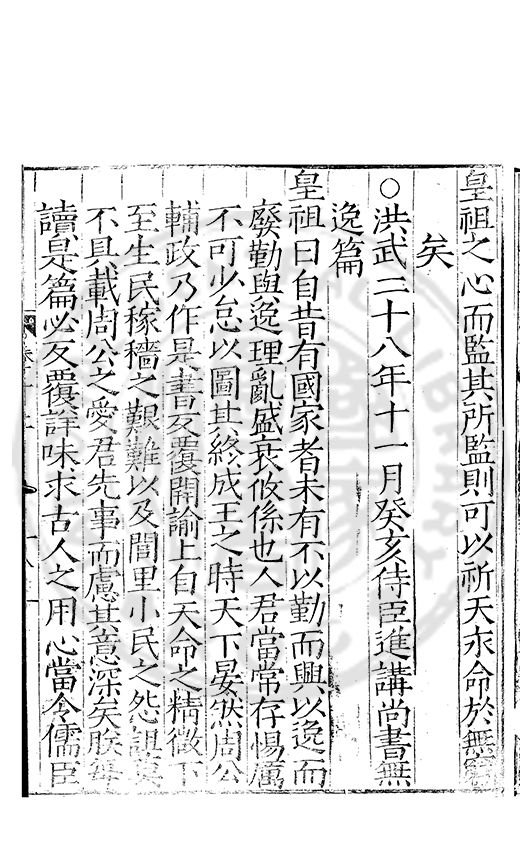 皇祖之心而監其所監則可以祈天永命於無窮
矣
○洪武二十八年十一月癸亥侍臣進講尚書無
逸篇
皇祖曰自昔有國家者未有不以勤而興以逸而
廢勤與逸理亂盛衰攸係也人君當常存惕厲
不可少怠以圖其終成王之時天下晏然周公
輔政乃作是書反覆開諭上自天命之精微下
至生民稼穡之艱難以及閭里小民之怨詛莫
不具載周公之愛君先事而慮其意深矣朕每
讀是篇必反覆詳味求古人之用心當令儒臣